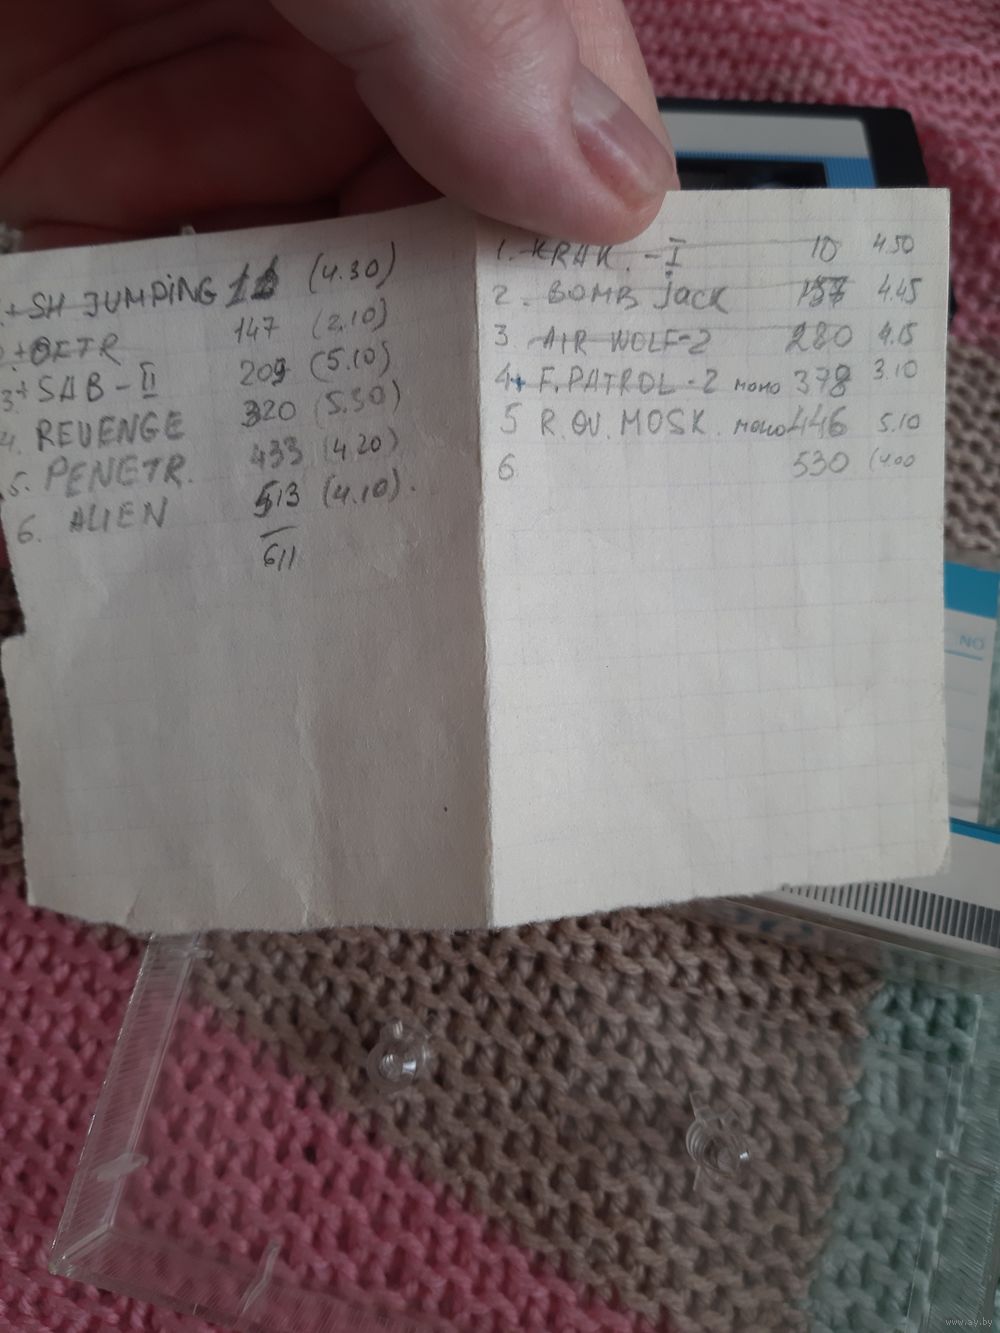 1.+ SH JUMPING 11 (4.30)
2.+ BETR 147 (2.10)
3+ SAB-II 209 (5.10)
4. REVENGE 320 (5.30)
5. PENETR. 433 (4.20)
6. ALIEN 513 (4.10).
611
1. KRAK. - I 10 4.50
2. BOMB JACK 157 4.45
3 AIR WOLF-2 280 4.15
4+ F.PATROL-2 моно 378 3.10
5 R.OV.MOSK. моно 446 5.10
6 530 (4.00
NO
www.ay.by